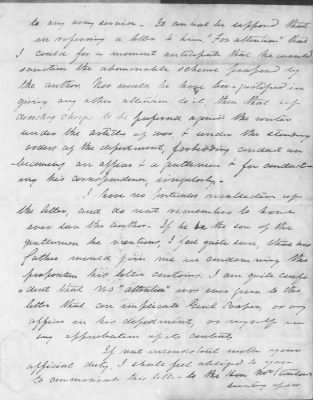 to any such service. It cannot be supposed that
in referring a letter to him "for attention" that
I could for a moment anticipate that he would
sanction the abominable scheme proposed by
the author. Nor would he have been justified in
giving any other attention to it, than that of
directing charges to be preferred against the writer
under the articles of war, & under the standing
orders of the department, forbidding conduct un
becoming an officer & a gentleman & for conduct
ing his correspondence, irregularly.
I have no particular recollection of
the letter, and do not remember to have
ever seen the author. If he be the son of the
gentleman he mentions, I feel quite sure, that his
father would join me in condemning the
proposition his letter contains. I am quite confi
dent that no "attention" was ever given to the
letter that can implicate Genl Cooper, or any
officer in his department, or myself in
any approbation of its contents.
If not inconsistent with your
official duty, I should feel obliged to you
to communicate this letter to the Hon